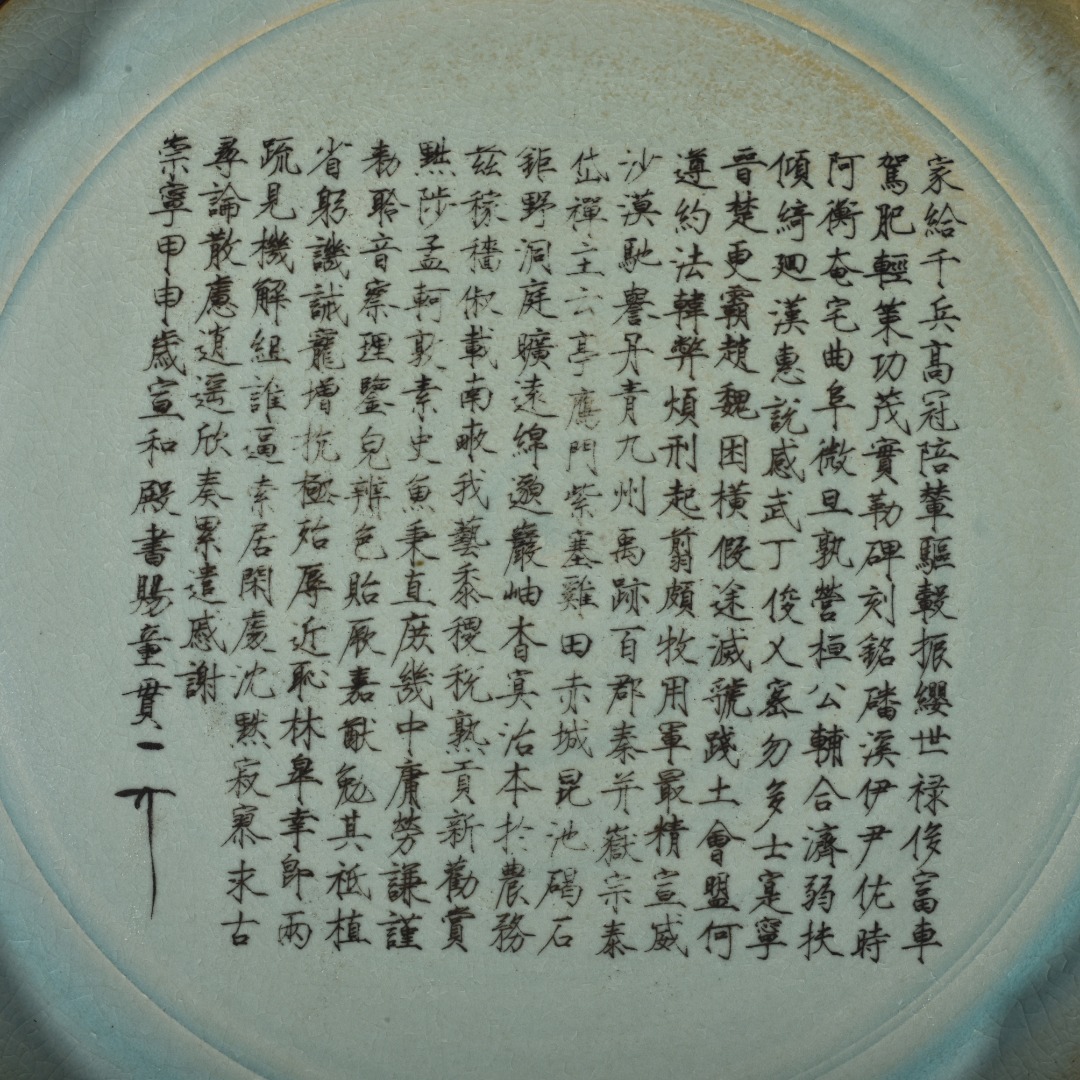 家給千兵高冠陪輦驅轂振纓世禄侈富車
駕肥輕策功茂實勒碑刻銘磻溪伊尹佐時
阿衡奄宅曲阜微旦孰營桓公輔合濟弱扶
傾綺廻漢惠説感武丁俊乂密勿多士寔寧
晉楚更霸趙魏困橫假途滅虢踐土會盟何
遵約法韓弊煩刑起翦頗牧用軍最精宣威
沙漠馳譽丹青九州禹跡百郡秦并嶽宗泰
岱禪主云亭鴈門紫塞雞田赤城昆池碣石
鉅野洞庭曠遠綿邈巖岫杳冥治本於農務
茲稼穡俶載南畝我藝黍稷稅熟貢新勸賞
黜陟孟軻敦素史魚秉直庶幾中庸勞謙謹
勑聆音察理鑒皃辨色貽厥嘉猷勉其祗植
省躬譏誡寵增抗極殆辱近恥林皋幸即兩
疏見機解組誰逼索居閑處沈默寂寥求古
尋論散慮逍遥欣奏累遣慼謝
崇寧甲申歲宣和殿書賜童貫